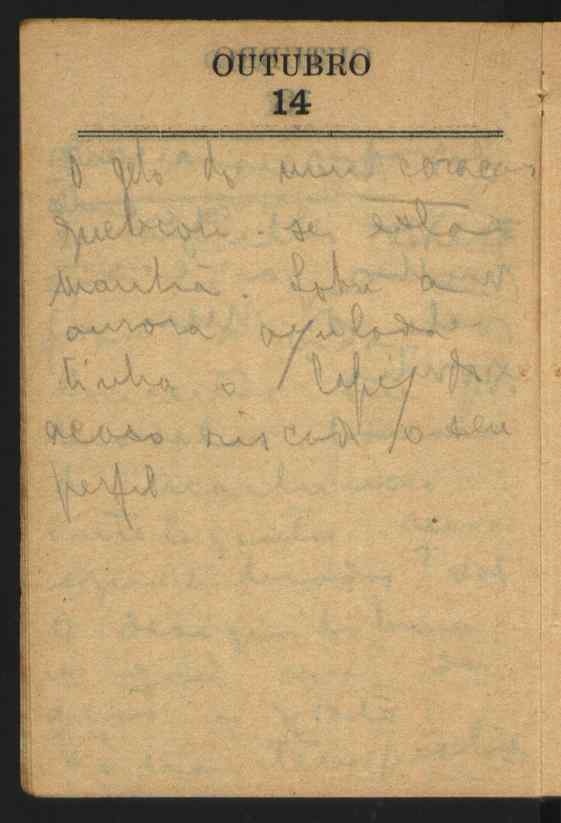 OUTUBRO
14
O gelo do meu coração
quebrou-se esta
manhã. Sobre a
aurora azulada
tinha o lapis do
acaso riscado o seu
perfil